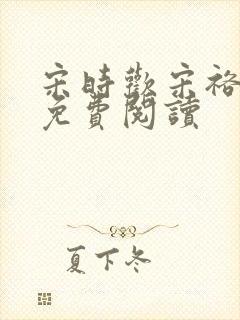 宋時歡宋裕
免費閱讀
夏下冬